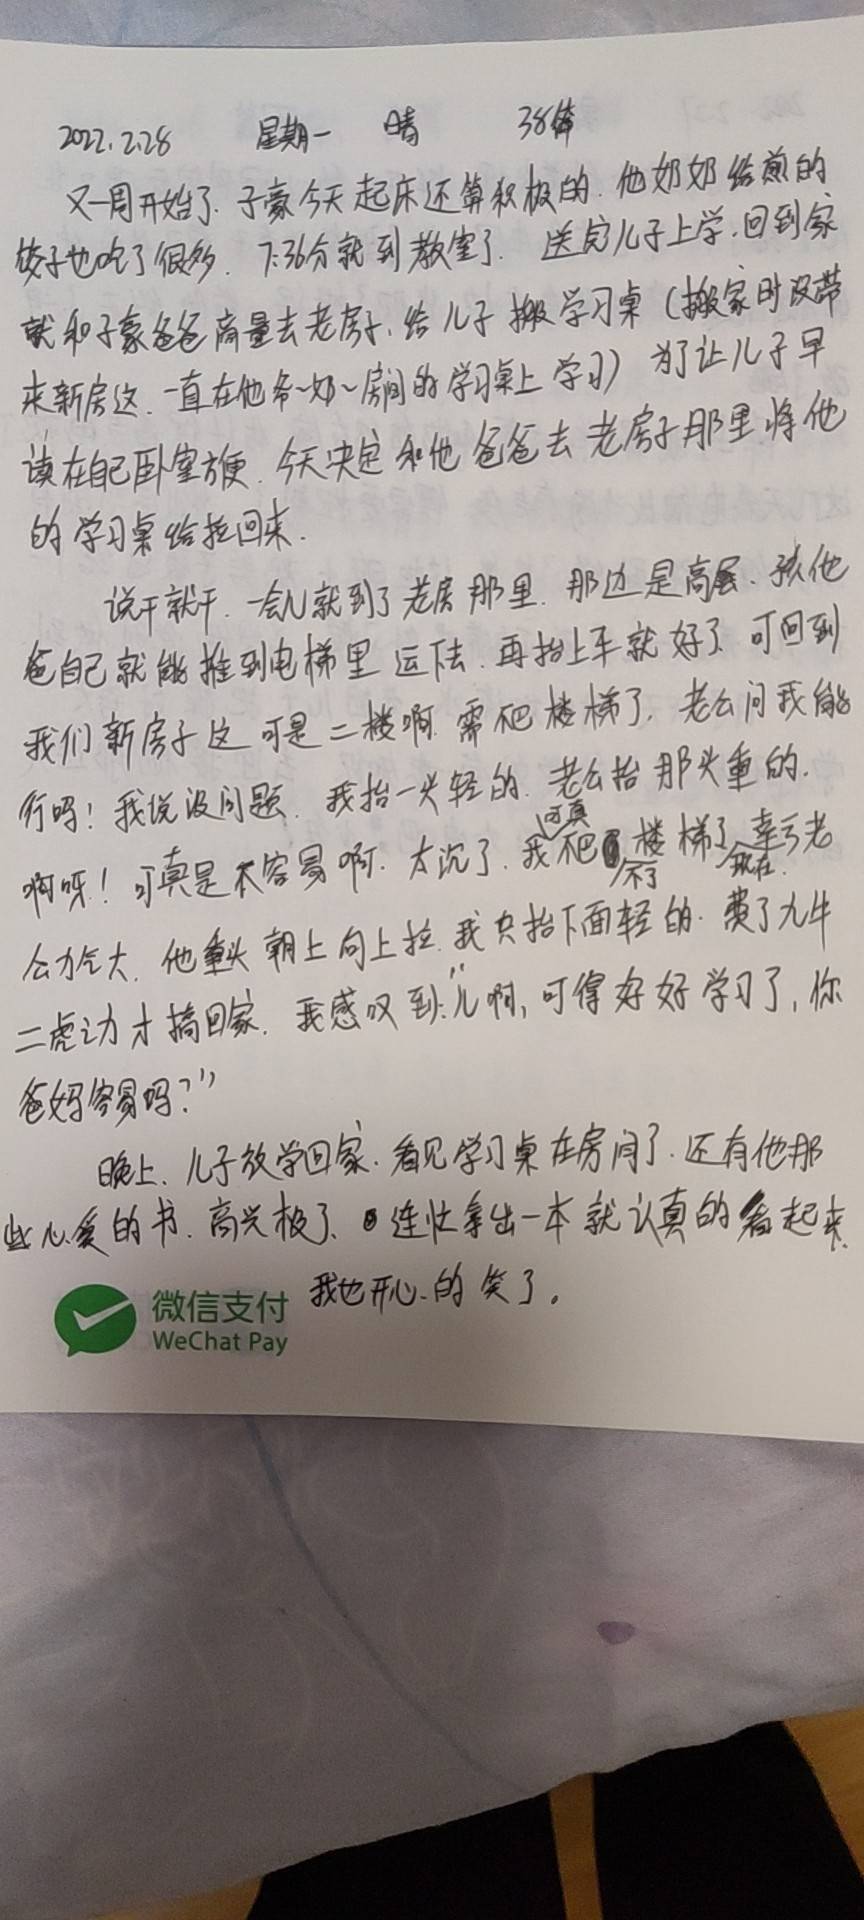 2022.2.28 星期一 晴 38篇
又一周开始了.子豪今天起床还算积极的.他奶奶给煎的
饺子也吃了很多.7:36分就到教室了.送完儿子上学.回到家
就和子豪爸爸商量去老房子.给儿子搬学习桌(搬家时没带
来新房这.一直在他爷~奶~房间的学习桌上学习)为了让儿子早
读在自己卧室方便.今天决定和他爸爸去老房子那里将他
的学习桌给拉回来.
说干就干.一会儿就到了老房那里.那边是高层.孩他
爸自己就能推到电梯里运下去.再抬上车就好了.可回到
我们新房子这可是二楼啊.需爬楼梯了.老公问我能
行吗!我说没问题.我抬一头轻的.老公抬那头重的.
啊呀!可真是不容易啊.太沉了.我可真爬不了楼梯了现在.幸亏老
公力气大.他重头朝上向上拉.我只抬下面轻的.费了九牛
二虎之力才搞回家.我感叹到:"儿啊,可得好好学习了,你
爸妈容易吗?"
晚上.儿子放学回家.看见学习桌在房间了.还有他那
些心爱的书.高兴极了.连忙拿出一本就认真的看起来.
我也开心的笑了。
微信支付
WeChat Pay